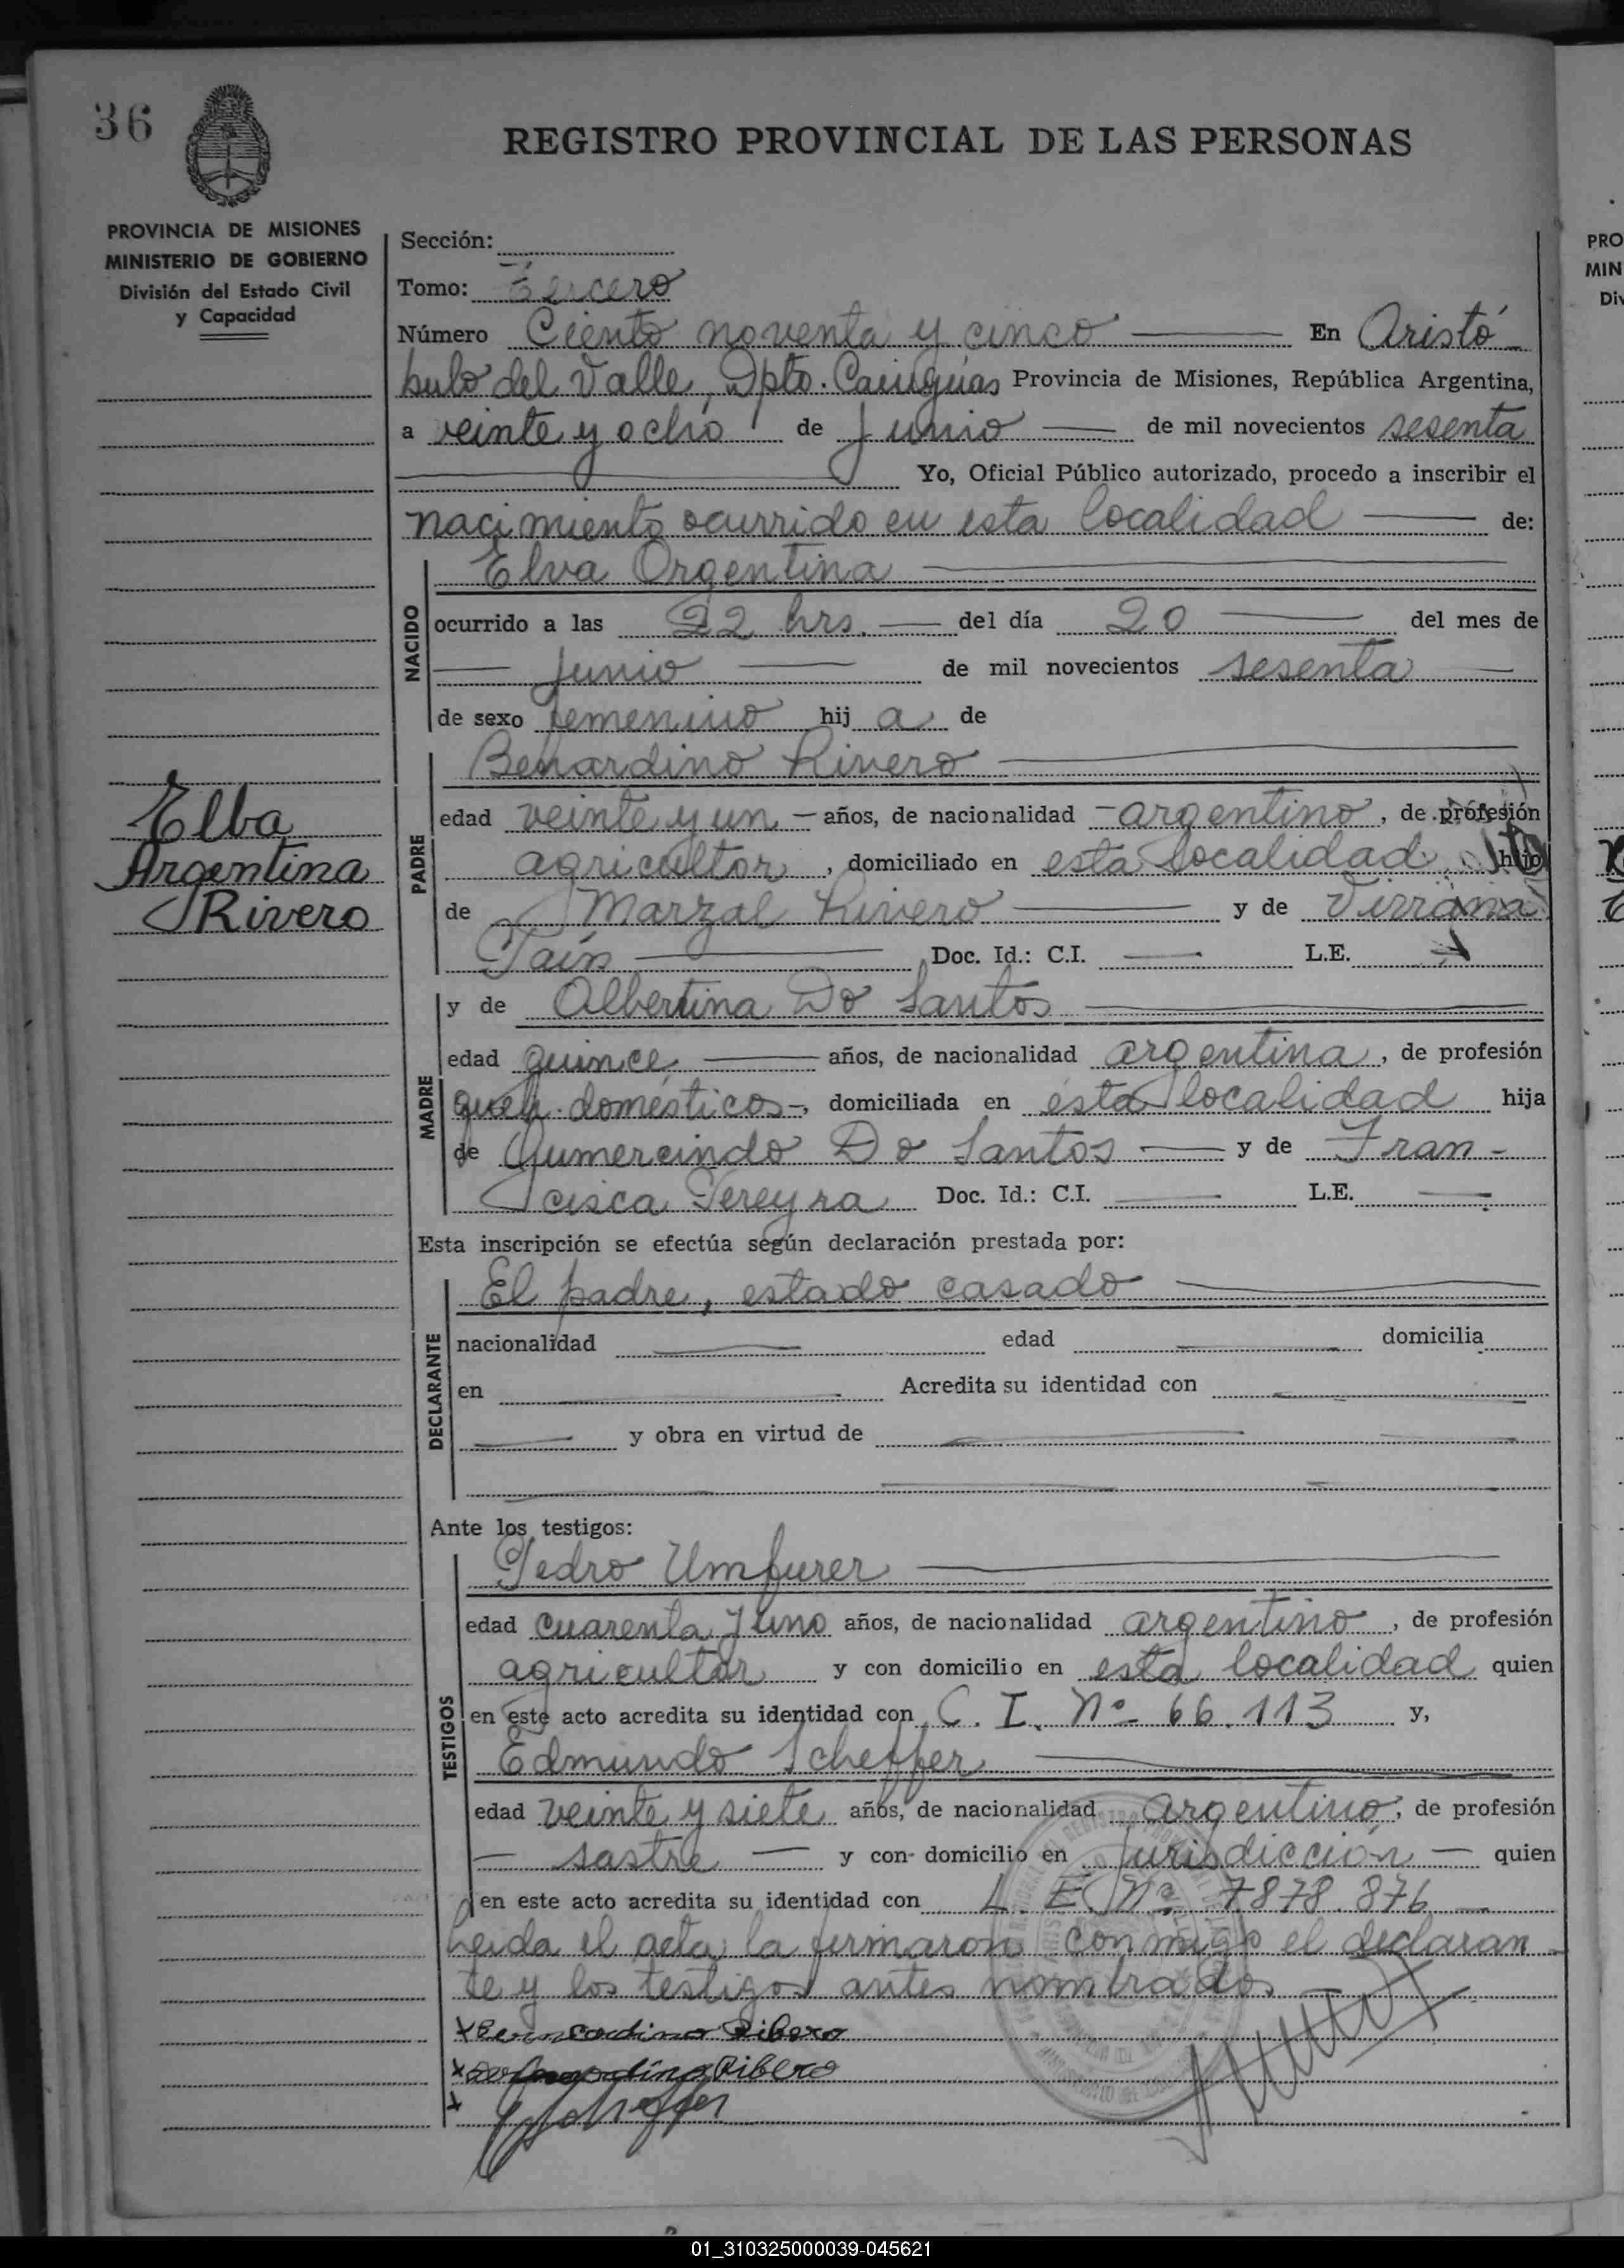 36
REGISTRO PROVINCIAL DE LAS PERSONAS
PROVINCIA DE MISIONES
MINISTERIO DE GOBIERNO
División del Estado Civil
y Capacidad
Sección:
Tomo: Tercero
Número Ciento noventa y cinco En Aristó
bulo del Valle, Dpto. Cainguas Provincia de Misiones, República Argentina,
a veinte y ocho de Junio de mil novecientos sesenta
Yo, Oficial Público autorizado, procedo a inscribir el
nacimiento ocurrido en esta localidad de:
Elva Argentina
NACIDO
ocurrido a las 22 hrs. del día 20 del mes de
junio de mil novecientos sesenta
de sexo femenino hij a de
Bernardino Rivero
Elba
Argentina
Rivero
PADRE
edad veinte y un años, de nacionalidad argentino, de profesión
agricultor, domiciliado en esta localidad, hijo
de Marzal Rivero y de
Doc. Id.: C.I. L.E.
y de Albertina Do Santos
MADRE
edad quince años, de nacionalidad argentina, de profesión
queh. domésticos, domiciliada en esta localidad hija
de Gumercindo Do Santos y de Fran-
cisca Pereyra Doc. Id.: C.I. L.E.
Esta inscripción se efectúa según declaración prestada por:
El padre, estado casado
DECLARANTE
nacionalidad edad domicilia
en Acredita su identidad con
y obra en virtud de
Ante los testigos:
Pedro Umfurer
TESTIGOS
edad cuarenta y uno años, de nacionalidad argentino, de profesión
agricultor y con domicilio en esta localidad quien
en este acto acredita su identidad con C. I. Nº 66.113 y,
Edmundo Scheffer
edad veinte y siete años, de nacionalidad argentino, de profesión
sastre y con domicilio en Jurisdicción quien
en este acto acredita su identidad con L. E. Nº 7878.876
Leida el acta la firmaron conmigo el declaran
te y los testigos antes nombrados
x Bernardino Ribero
x Ribero
x
PRO
MIN
Div
01_310325000039-045621